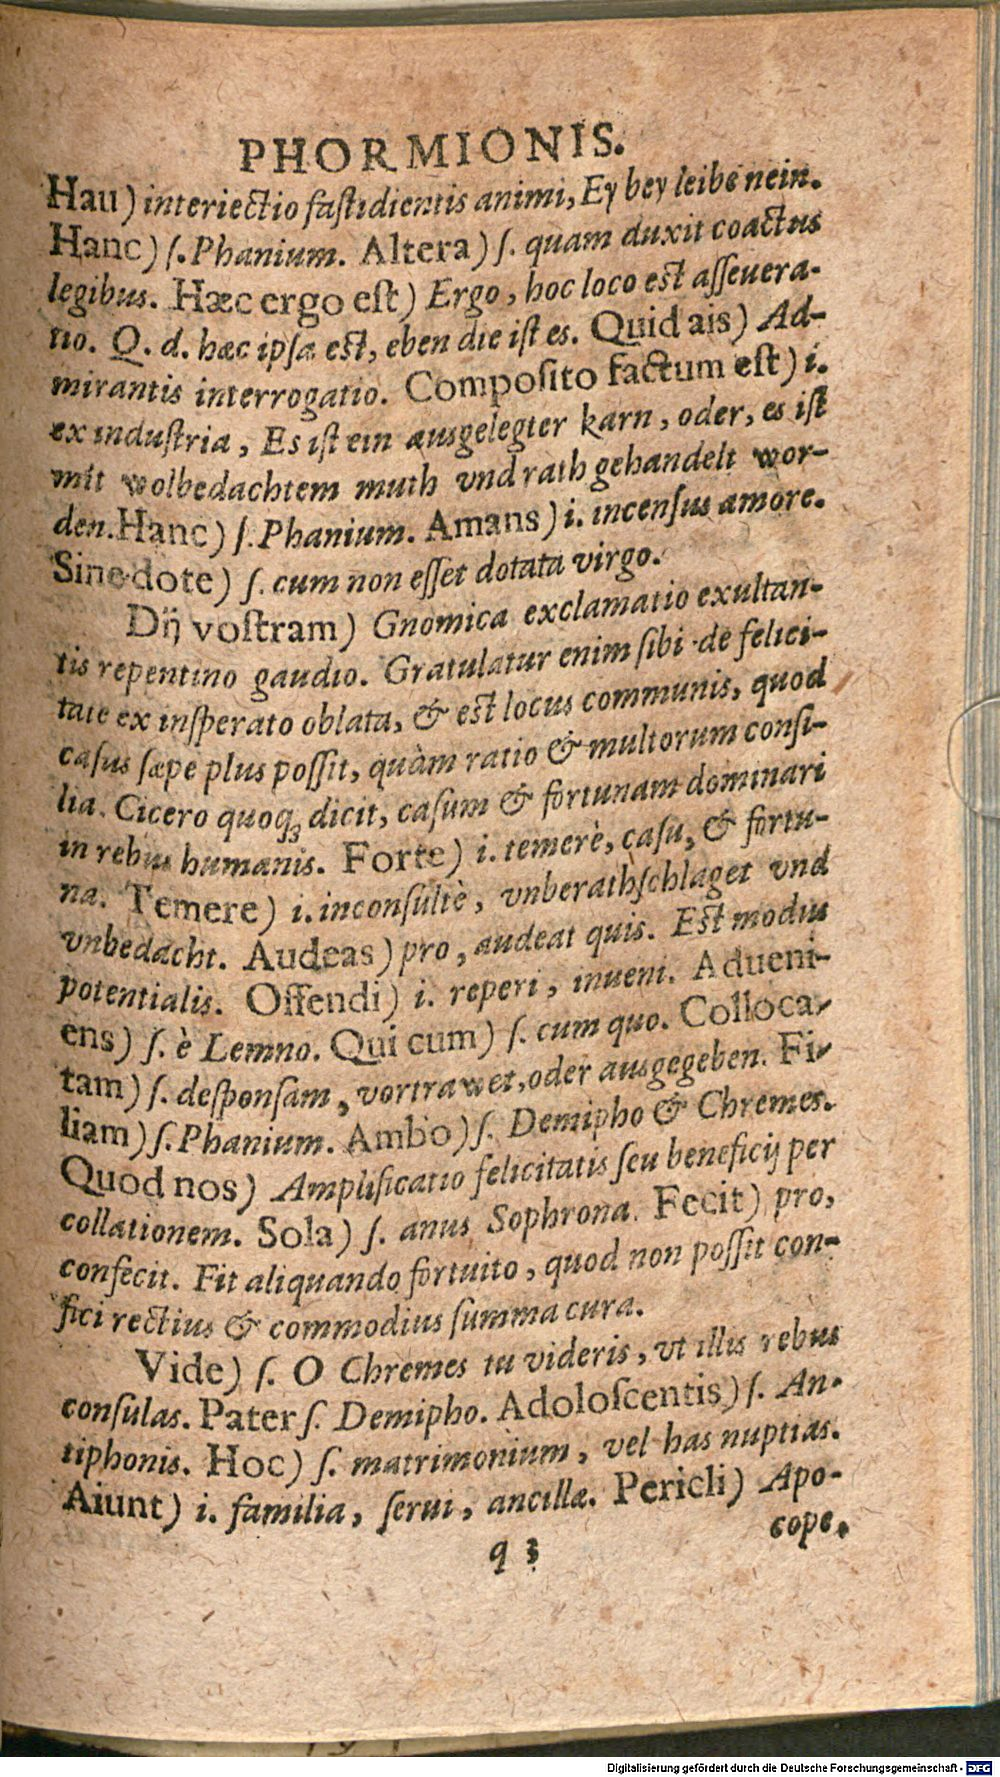 PHORMIONIS.
Hau) interiectio fastidientis animi, Ey bey leibe nein.
Hanc) ſ. Phanium. Altera) ſ. quam duxit coactus
legibus. Hæc ergo eſt) Ergo, hoc loco eſt aſſeuera-
tio. Q. d. hæc ipſa eſt, eben die iſt es. Quid ais) Ad-
mirantis interrogatio. Compoſito factum eſt) i.
ex induſtria, Es iſt ein ausgelegter karn, oder, es iſt
mit wolbedachtem muth vnd rath gehandelt wor-
den. Hanc) ſ. Phanium. Amans) i. incenſus amore.
Sine dote) ſ. cum non eſſet dotata virgo.
Dij voſtram) Gnomica exclamatio exultan-
tis repentino gaudio. Gratulatur enim ſibi de felici-
tate ex inſperato oblata, & eſt locus communis, quod
caſus ſæpe plus poſſit, quàm ratio & multorum conſi-
lia. Cicero quoqꝫ dicit, caſum & fortunam dominari
in rebus humanis. Forte) i. temerè, caſu, & fortu-
na. Temere) i. inconſultè, vnberathſchlaget vnd
vnbedacht. Audeas) pro, audeat quis. Eſt modus
potentialis. Offendi) i. reperi, inueni. Adueni-
ens) ſ. è Lemno. Qui cum) ſ. cum quo. Colloca-
tam) ſ. deſponſam, vortrawet, oder ausgegeben. Fi-
liam) ſ. Phanium. Ambo) ſ. Demipho & Chremes.
Quod nos) Amplificatio felicitatis ſeu beneficij per
collationem. Sola) ſ. anus Sophrona. Fecit) pro,
confecit. Fit aliquando fortuito, quod non poſſit con-
fici rectius & commodius ſumma cura.
Vide) ſ. O Chremes tu videris, vt illis rebus
conſulas. Pater ſ. Demipho. Adoloſcentis) ſ. An-
tiphonis. Hoc) ſ. matrimonium, vel has nuptias.
Aiunt) i. familia, ſerui, ancillæ. Pericli) Apo-
q 3 cope.
Digitalisierung gefördert durch die Deutsche Forschungsgemeinschaft - DFG